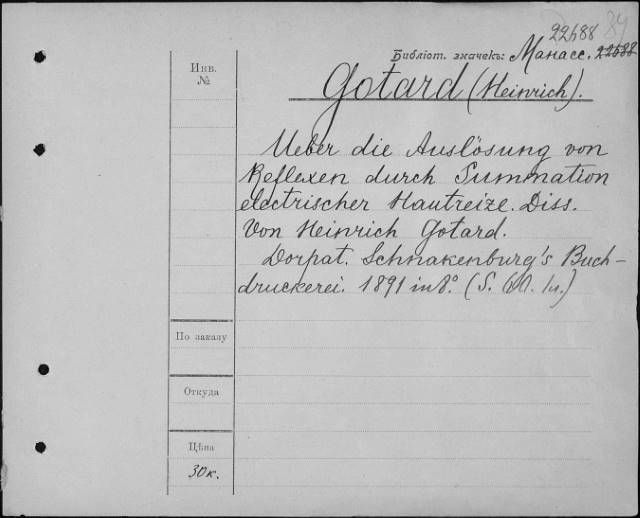 22688 84
Библіот. значекъ: Манасс. 22688
Инв.
№
Gotard (Heinrich).
Ueber die Auslösung von
Reflexen durch Summation
electrischer Hautreize. Diss.
Von Heinrich Gotard.
Dorpat. Schnakenburg's Buch-
druckerei. 1891 in 8°. (S.
По заказу
Откуда
Цѣна
30 к.